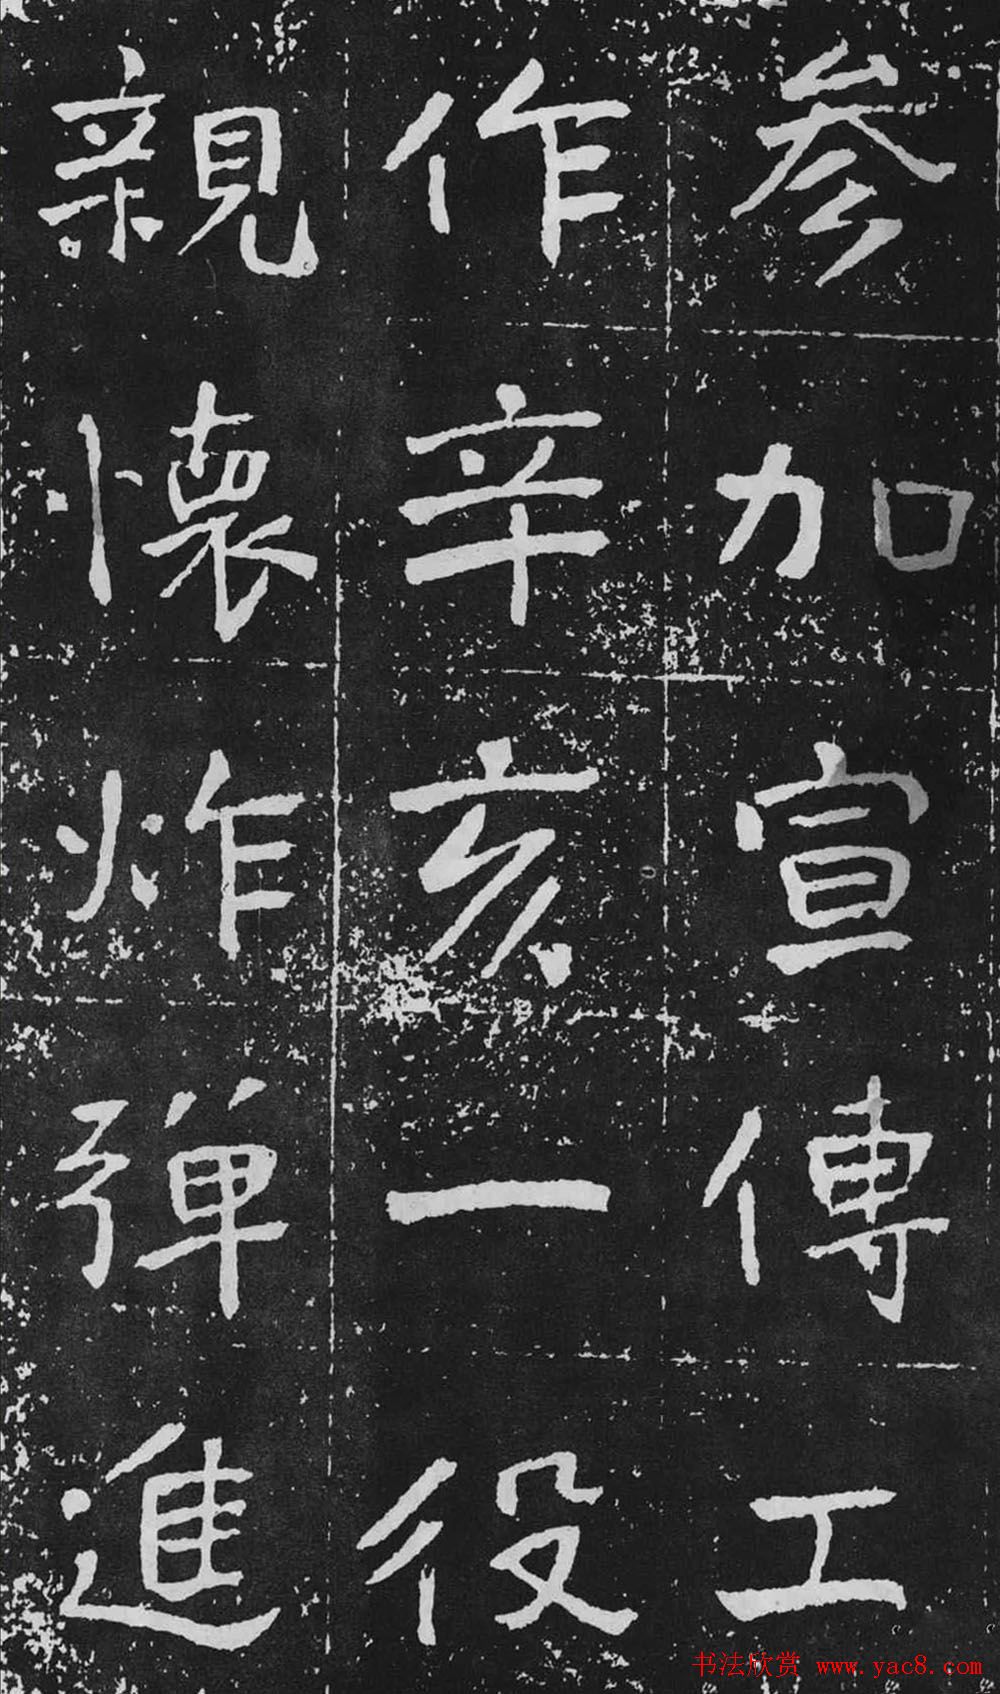 参加宣傳工
作辛亥一役
親懷炸彈進
书法欣赏 www.yac8.com